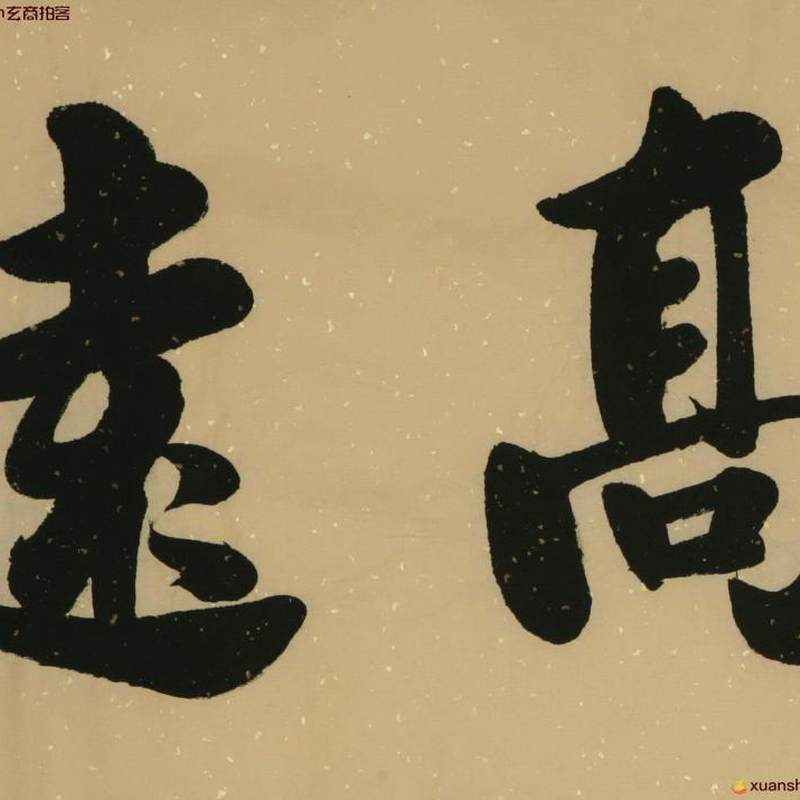 n玄商拍客
髙遠
xuansh